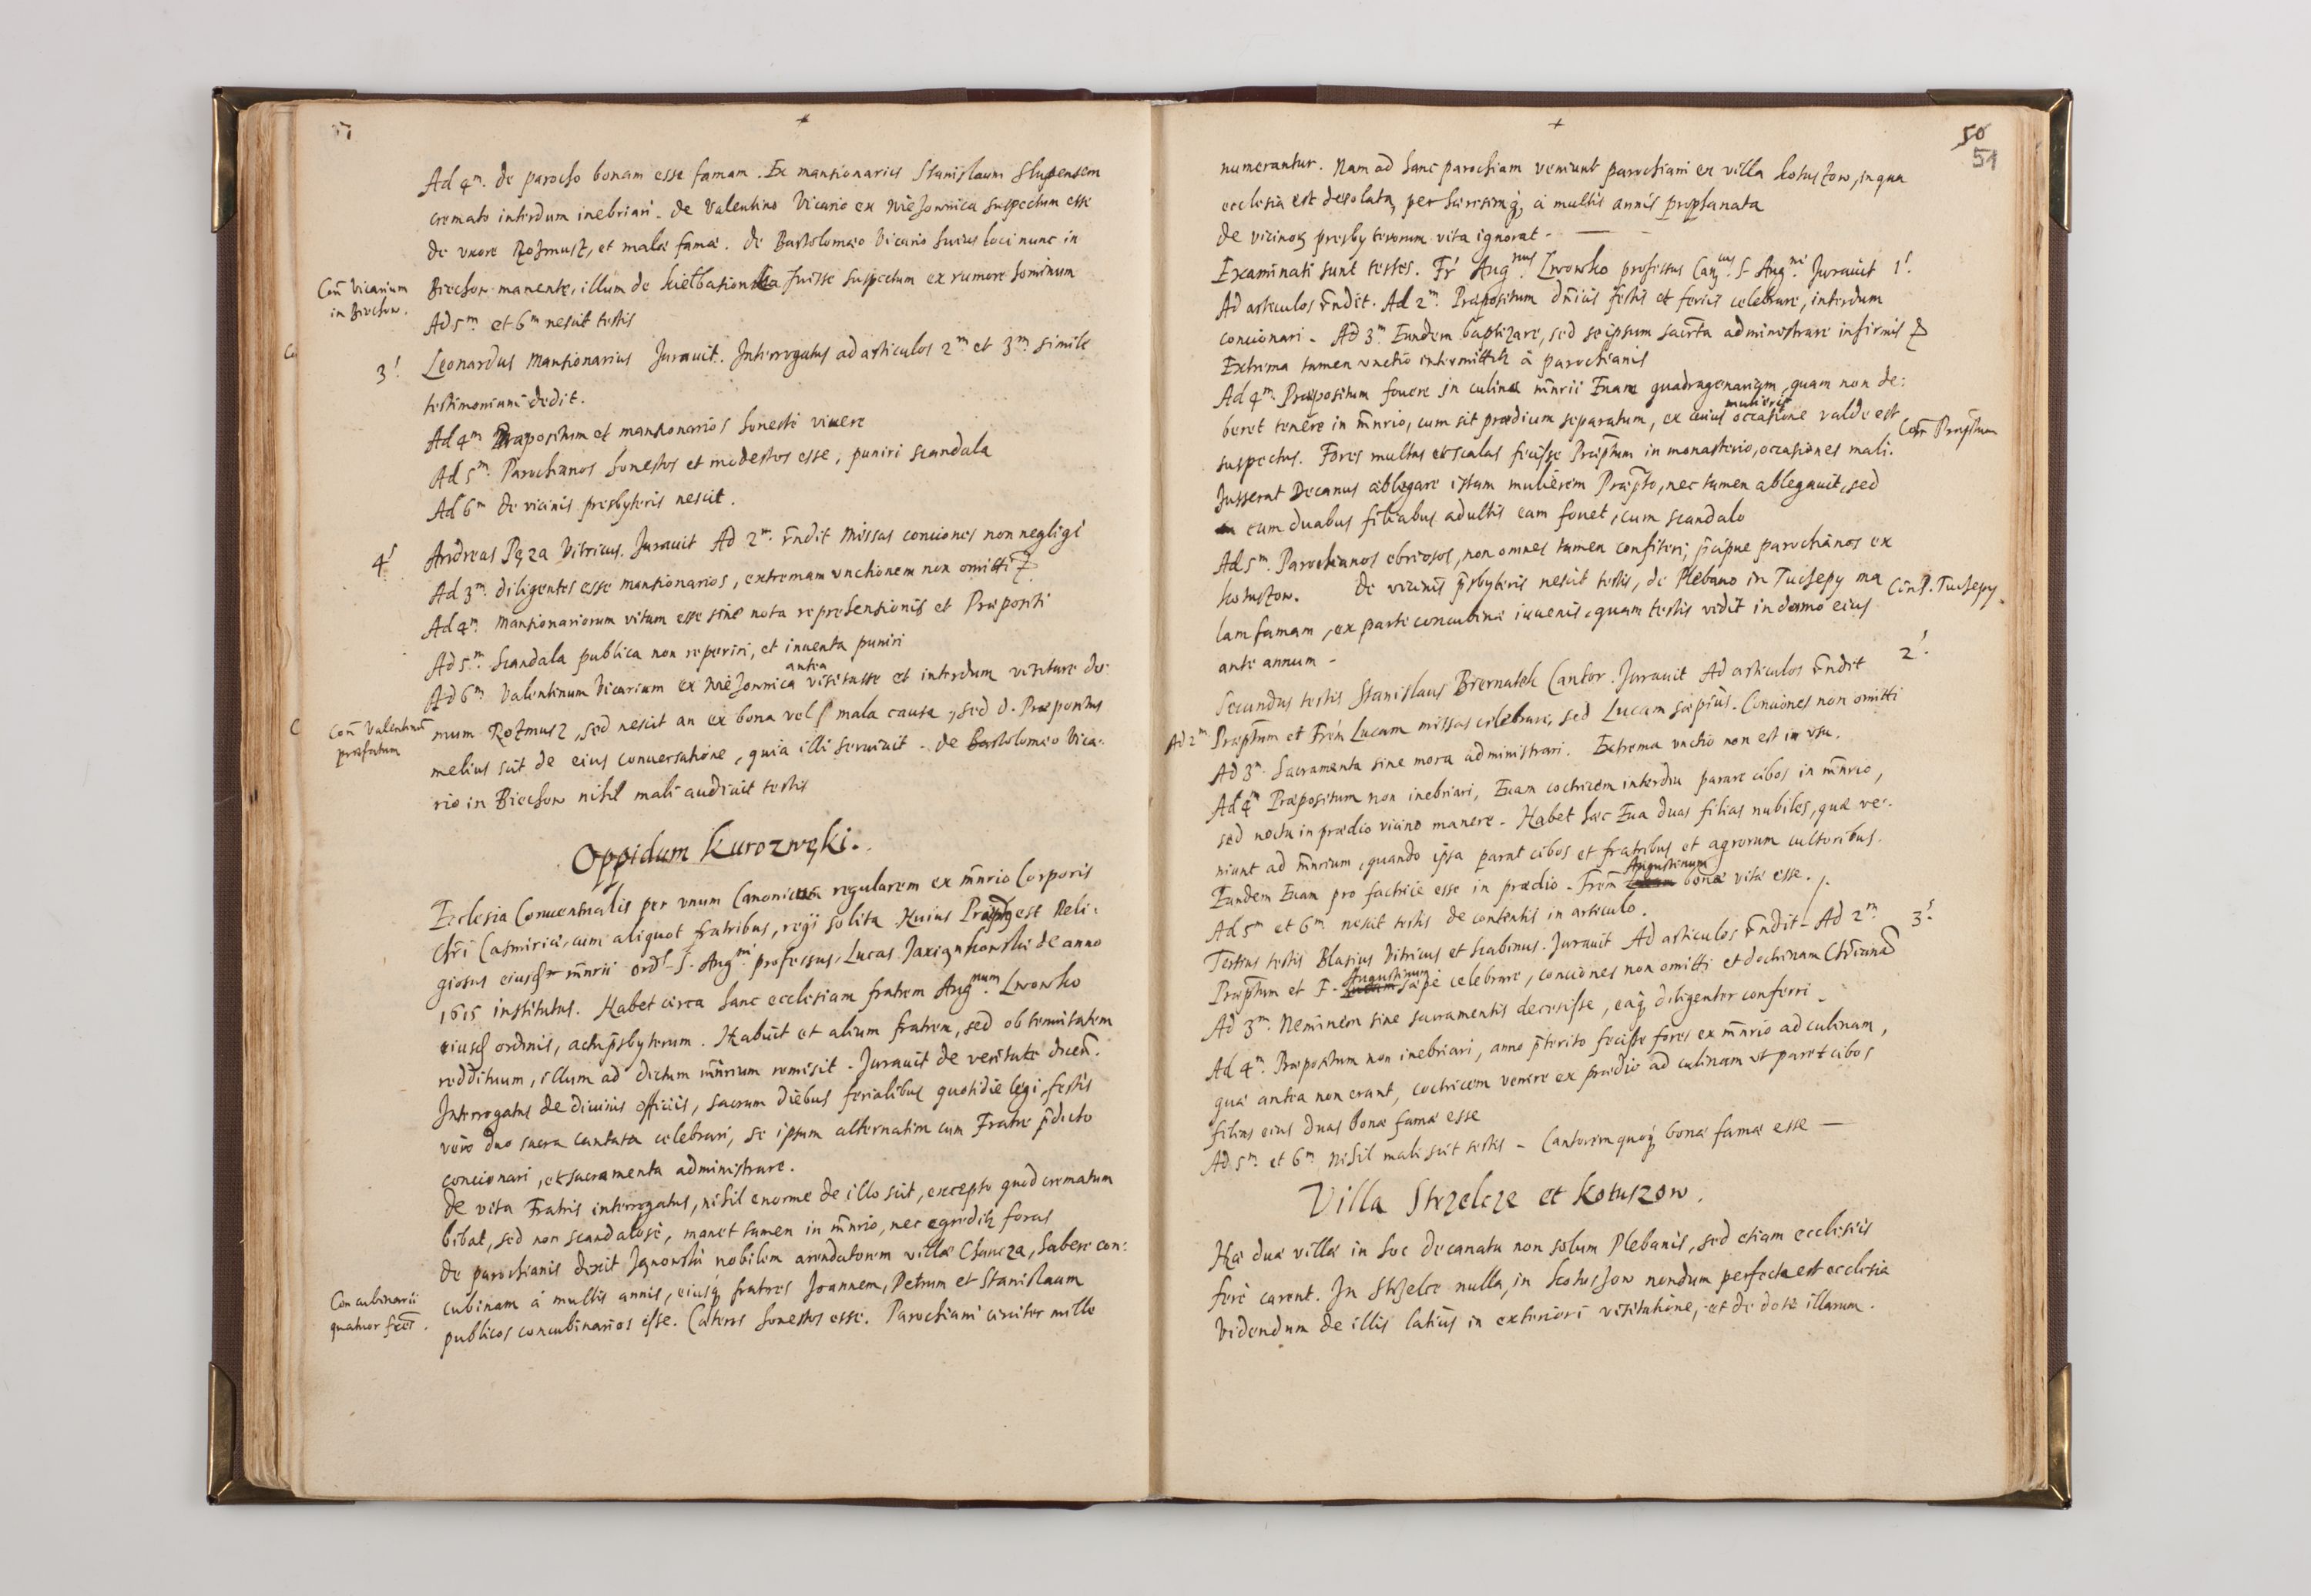 +
Ad 4m. de parocho bonam esse famam. Ex mansionariis Stanislaum Slupensem
cremato interdum inebriari. de Valentino Vicario ex suspectum esse
de uxore Rozmusz, et mala fama. de Bartolomæo Vicario huius loci nunc in
Con Vicarium
in Biechow.
Biechow manente, illum de fuisse suspectum ex rumore hominum
Ad 5m. et 6m nescit testis
3!
Leonardus Mansionarius Jurauit. Interrogatus ad articulos 2m et 3m simile
testimonium dedit.
Ad 4m Præpositum et mansionarios honeste viuere
Ad 5m. Parochianos honestos et modestos esse, puniri scandala
Ad 6m de vicinis presbyteris nescit.
4!
Andreas Pęza Vitricus. Jurauit Ad 2m. r̄ndit Missas conciones non negligi
Ad 3m. diligentes esse mansionarios, extremam vnctionem non omitti
Ad 4m. Mansionariorum vitam esse sine nota reprehensionis et Præpositi
Ad 5m. Scandala publica non reperiri, et inuenta puniri
antea
Ad 6m. Valentinum Vicarium ex visitasse et interdum visitare do-
Con Valentinū
præfatum
mum Rozmusz, sed nescit an ex bona vel mala causa, sed D. Præpositus
melius scit de eius conuersatione, quia illi seruiuit - de Bartolomæo Vica-
rio in Biechow nihil mali audiuit testis
Oppidum Kurozwęki.
Ecclesia Conuentualis per vnum Canonicum regularem ex m̄nrio Corporis
Chri Casmiriæ, cum aliquot fratribus, regi solita Huius est Reli-
giosus m̄nrii ord. S. Augmi professus, Lucas de anno
1615 institutus. Habet circa hanc ecclesiam fratrem Augnum Lwowko
ordinis, actu p̄sbyterum. Habuit et alium fratrem, sed ob tenuitatem
reddituum, illum ad dictum m̄nrium remisit. Jurauit de veritate dicen.
Interrogatus de diuinis officiis, sacrum diebus ferialibus quotidie legi, festis
vero duo sacra cantata celebrari, se ipsum alternatim cum Fratre p̄dicto
concionari, et sacramenta administrare.
de vita Fratris interrogatus, nihil enorme de illo scit, excepto quod crematum
bibat, sed non scandalose, manet tamen in m̄nrio, nec foras
de parochianis dixit nobilem arendatorem villæ Chancza, habere con-
Concubinarii
quatuor
cubinam à multis annis, fratres Joannem, Petrum et Stanislaum
publicos concubinarios esse. Cæteros honestos esse. Parochiani circiter mille
+
50
51
numerantur. Nam ad hanc parochiam veniunt parochiani ex villa Kotuszow, in qua
ecclesia est desolata, per à multis annis prophanata
de presbyterorum vita ignorat -
Examinati sunt testes. Augnus. Lwowko professus S. Augni Jurauit 1!
Ad articulos r̄ndit. Ad 2m. Præpositum d̄nicis festis et feriis celebrare, interdum
concionari. Ad 3m. Eundem baptizare, sed seipsum administrare infirmis
Extrema tamen vnctio à parochianis
Ad 4m. Præpositum fouere in culina m̄nrii Euam quadragenariam, quam non de-
mulieris
beret tenere in m̄nrio, cum sit prædium separatum, ex cuius occasione valde est
suspectus. Fores multas et scalas fecisse Præp̄tum in monasterio, occasiones mali.
Con Præp̄tum
Jusserat Decanus ablegare istam mulierem Præp̄to, nec tamen ablegauit, sed
cum duabus filiabus adultis eam fouet, cum scandalo
Ad 5m. Parochianos ebriosos, non omnes tamen confiteri; p̄cipue parochianos ex
Kotuszow. de vicinis p̄sbyteris nescit testis, de Plebano in Tuchepy ma
Con P. Tuchepy.
lam famam, ex parte concubinæ iuuenis, quam testis vidit in domo eius
ante annum -
2!
Secundus testis Stanislaus Biernatek Cantor. Jurauit Ad articulos r̄ndit
Ad 2m Præp̄tum et Fr̄em Lucam missas celebrare, sed Lucam sæpius. Conciones non omitti
Ad 3m. Sacramenta sine mora administrari. Extrema vnctio non est in vsu.
Ad 4m Præpositum non inebriari, Euam coctricem interdiu parare cibos in m̄nrio,
sed noctu in prædio vicino manere. Habet hæc Eua duas filias nubiles, quæ ve-
niunt ad m̄nrium, quando ipsa parat cibos et fratribus et agrorum cultoribus.
Augustinum
Eundem Euam pro factrice esse in prædio. Fr̄em bonæ vitæ esse.
Ad 5m et 6m. nescit testis de contentis in articulo.
3!
Tertius testis Blasius Vitricus et Scabinus. Jurauit Ad articulos r̄ndit - Ad 2m
Augustinum
Præp̄tum et F. sæpe celebrare, conciones non omitti et doctrinam
Ad 3m. Neminem sine sacramentis decessisse, diligenter conferri.
Ad 4m. Præpositum non inebriari, anno p̄terito fecisse fores ex m̄nrio ad culinam,
quæ antea non erant, coctricem venire ex prædio ad culinam vt paret cibos
filias eius duas bonæ famæ esse
Ad 5m. et 6m nihil mali scit testis - Cantorem bonæ famæ esse —
Villa Strzelcze et Kotuszow.
Hæ duæ villæ in hoc decanatu non solum Plebanis, sed etiam ecclesiis
fere carent. In Strzelce nulla, in Kotuszow nondum perfecta est ecclesia
Videndum de illis latius in exteriori visitatione, et de dote illarum.